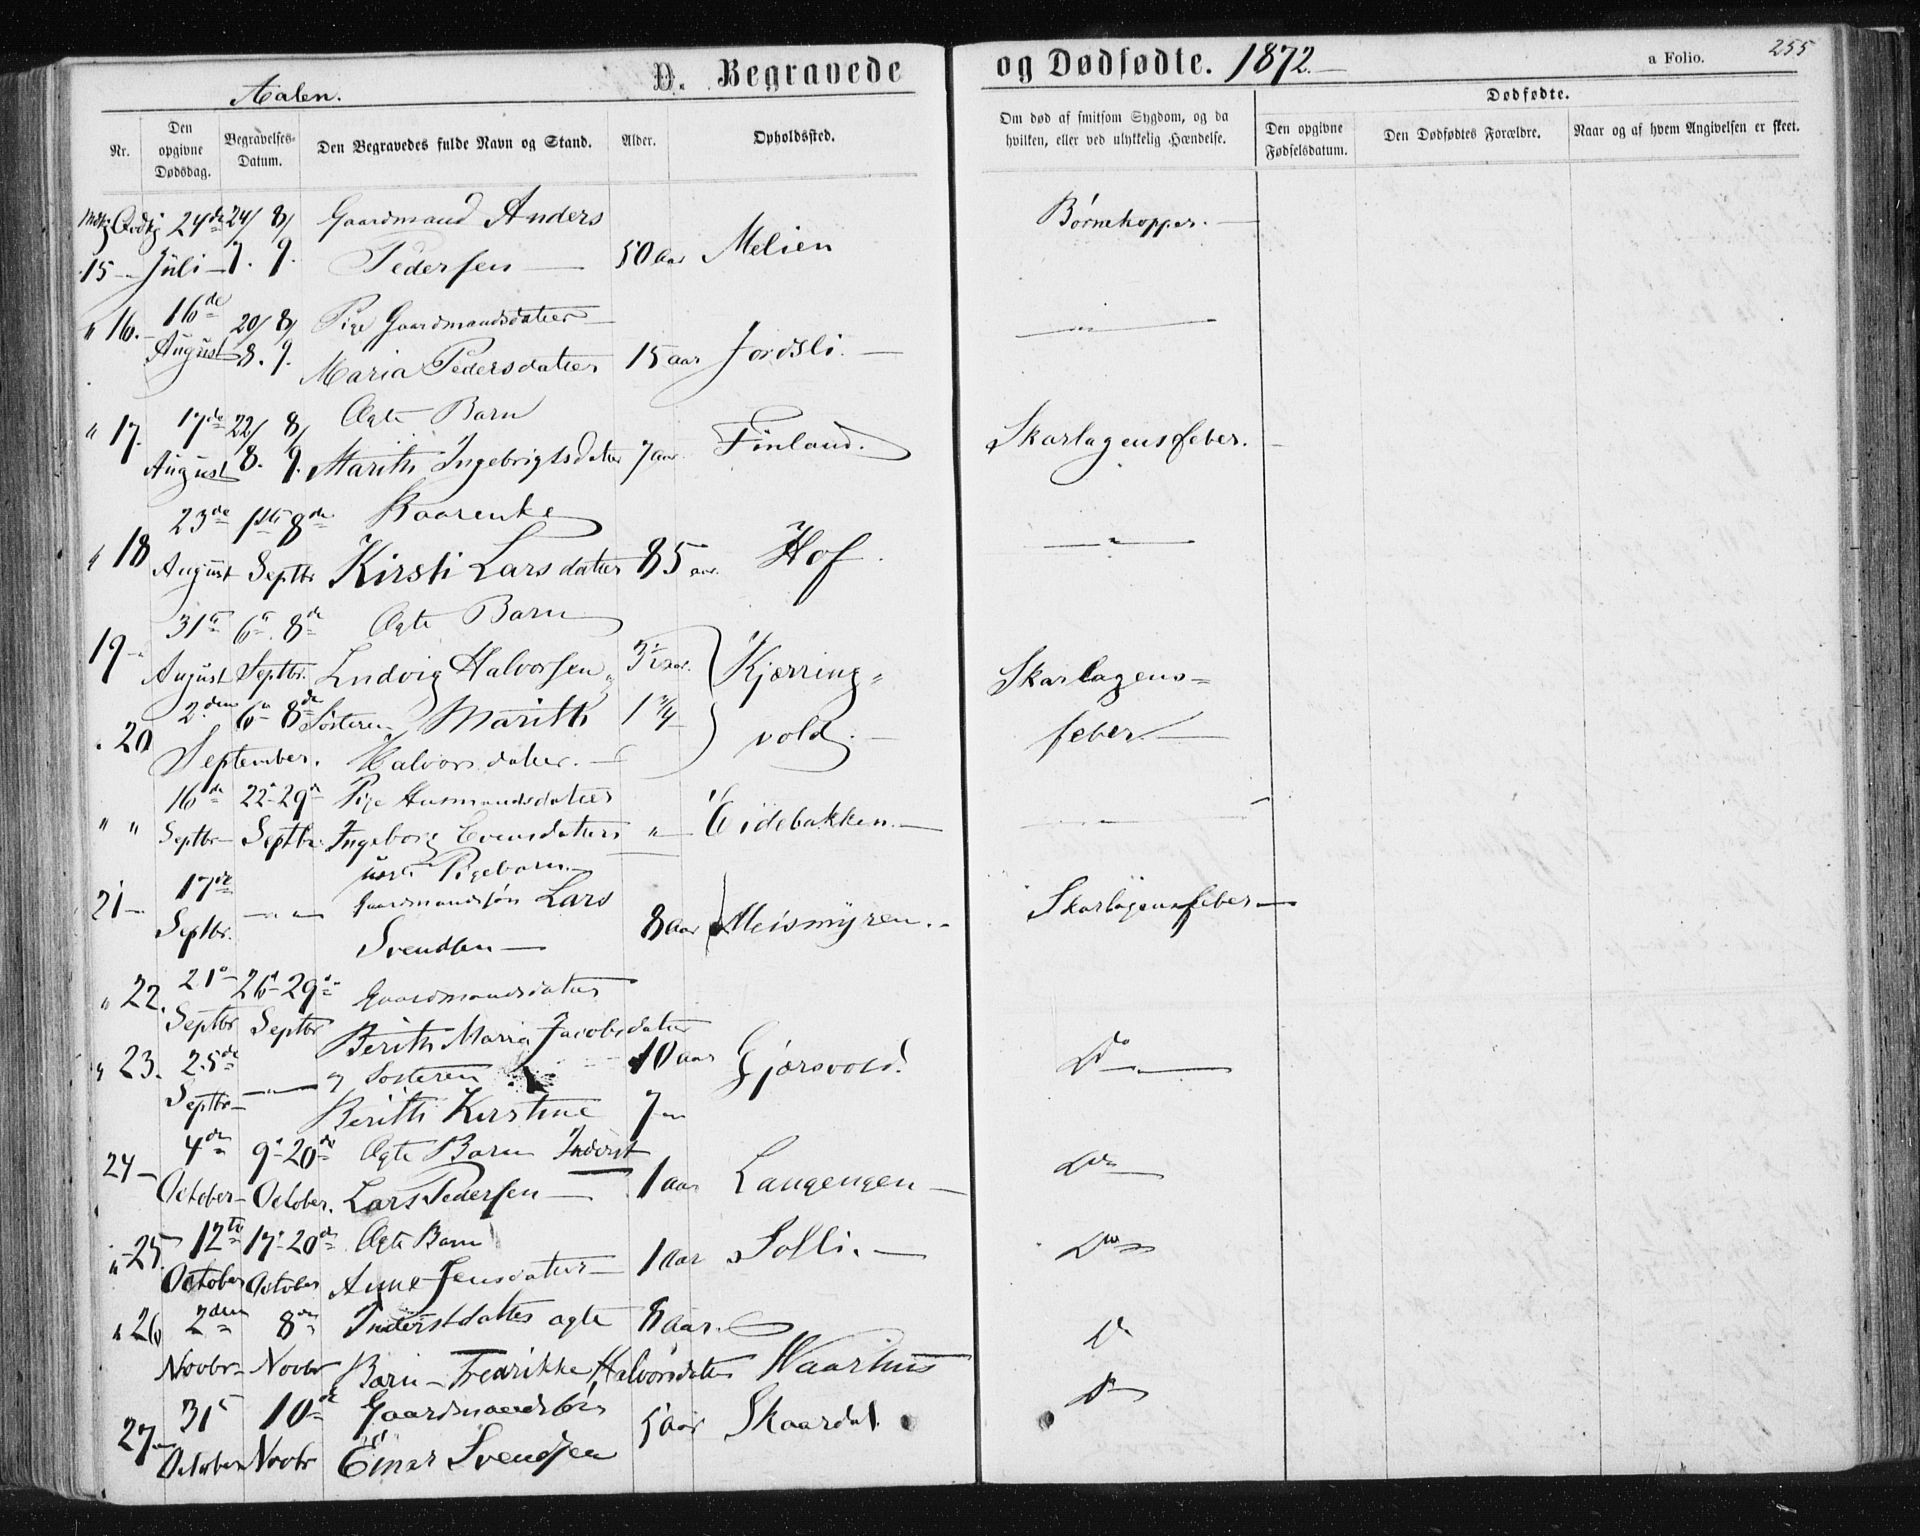 Aalen.
D. Begravede
og Dødfødte. 1872.
a Folio. 255
Nr.
Den opgivne Dødsdag.
Begravelses-Datum.
Den Begravedes fulde Navn og Stand.
Alder.
Opholdssted.
Om død af smitsom Sygdom, og da hvilken, eller ved ulykkelig Hændelse.
Dødfødte.
Den opgivne Fødselsdatum.
Den Dødfødtes Forældre.
Naar og af hvem Angivelsen er skeet.
24de 24/ 8/ Gaardmand Anders Børnekopper. —
15 — Juli — 7. 9. Pedersen — 50 aar Melien
" 16. — 16de 20/ 8/ Pige Gaardmandsdatter — " —
August 8. 9. Maria Pedersdatter 15 aar Jordsli. —
" 17. 17de 22/ 8/ Ægte Barn Finland. Skarlagensfeber. —
August 8. 9. Marith Ingebrigtsdatter 7 aar
23de 1ste 8de Kaarenke
" 18 August Septbr Kirsti Larsdatter 85 aar. Hof. — " —
31te 6te 8de Ægte Barn
19 — August Septbr. Ludvig Halvorsen Kjærring= Skarlagens=
20 2den 6te 8de Søsteren Marith 1 3/4 vold. — feber. —
September. Halvorsdatter. —
16de 22de 29de Pige Husmandsdatter
" " Septbr Septbr. Ingeborg Evensdatters " Eidebakken. —
Pigebarn
21 — 17de — " — Gaardmandssøn Lars Skarlagensfeber —
Septbr. Svendsen — 8 aar Meismyren. —
" 22. 21de 26de 29de Gaardmandsdatter
Septbr Septbr Berith Maria Jacobsdatter
" 23. 25de — " — og Søsteren 10 aar Gjærsvold. Do —
Septbr — Berith Kirstine 7 "
24 — 4de 9de 20de Ægte Barn Inderst Do —
October — October. Lars Pedersen — 1 aar Langengen —
" 25. 12te 17de 20de Ægte Barn
October October Anne Jensdatter — 1 aar Solli. — Do
" 26 2den 8de Inderstdatter ægte 8 aar. Do
Novbr — Novbr Barn — Fredrikke Halvorsdatter Waarhus
31te 10de Gaardmandssøn Do
27 — October Novbr Einar Svendsen 5 aar Skaardal.